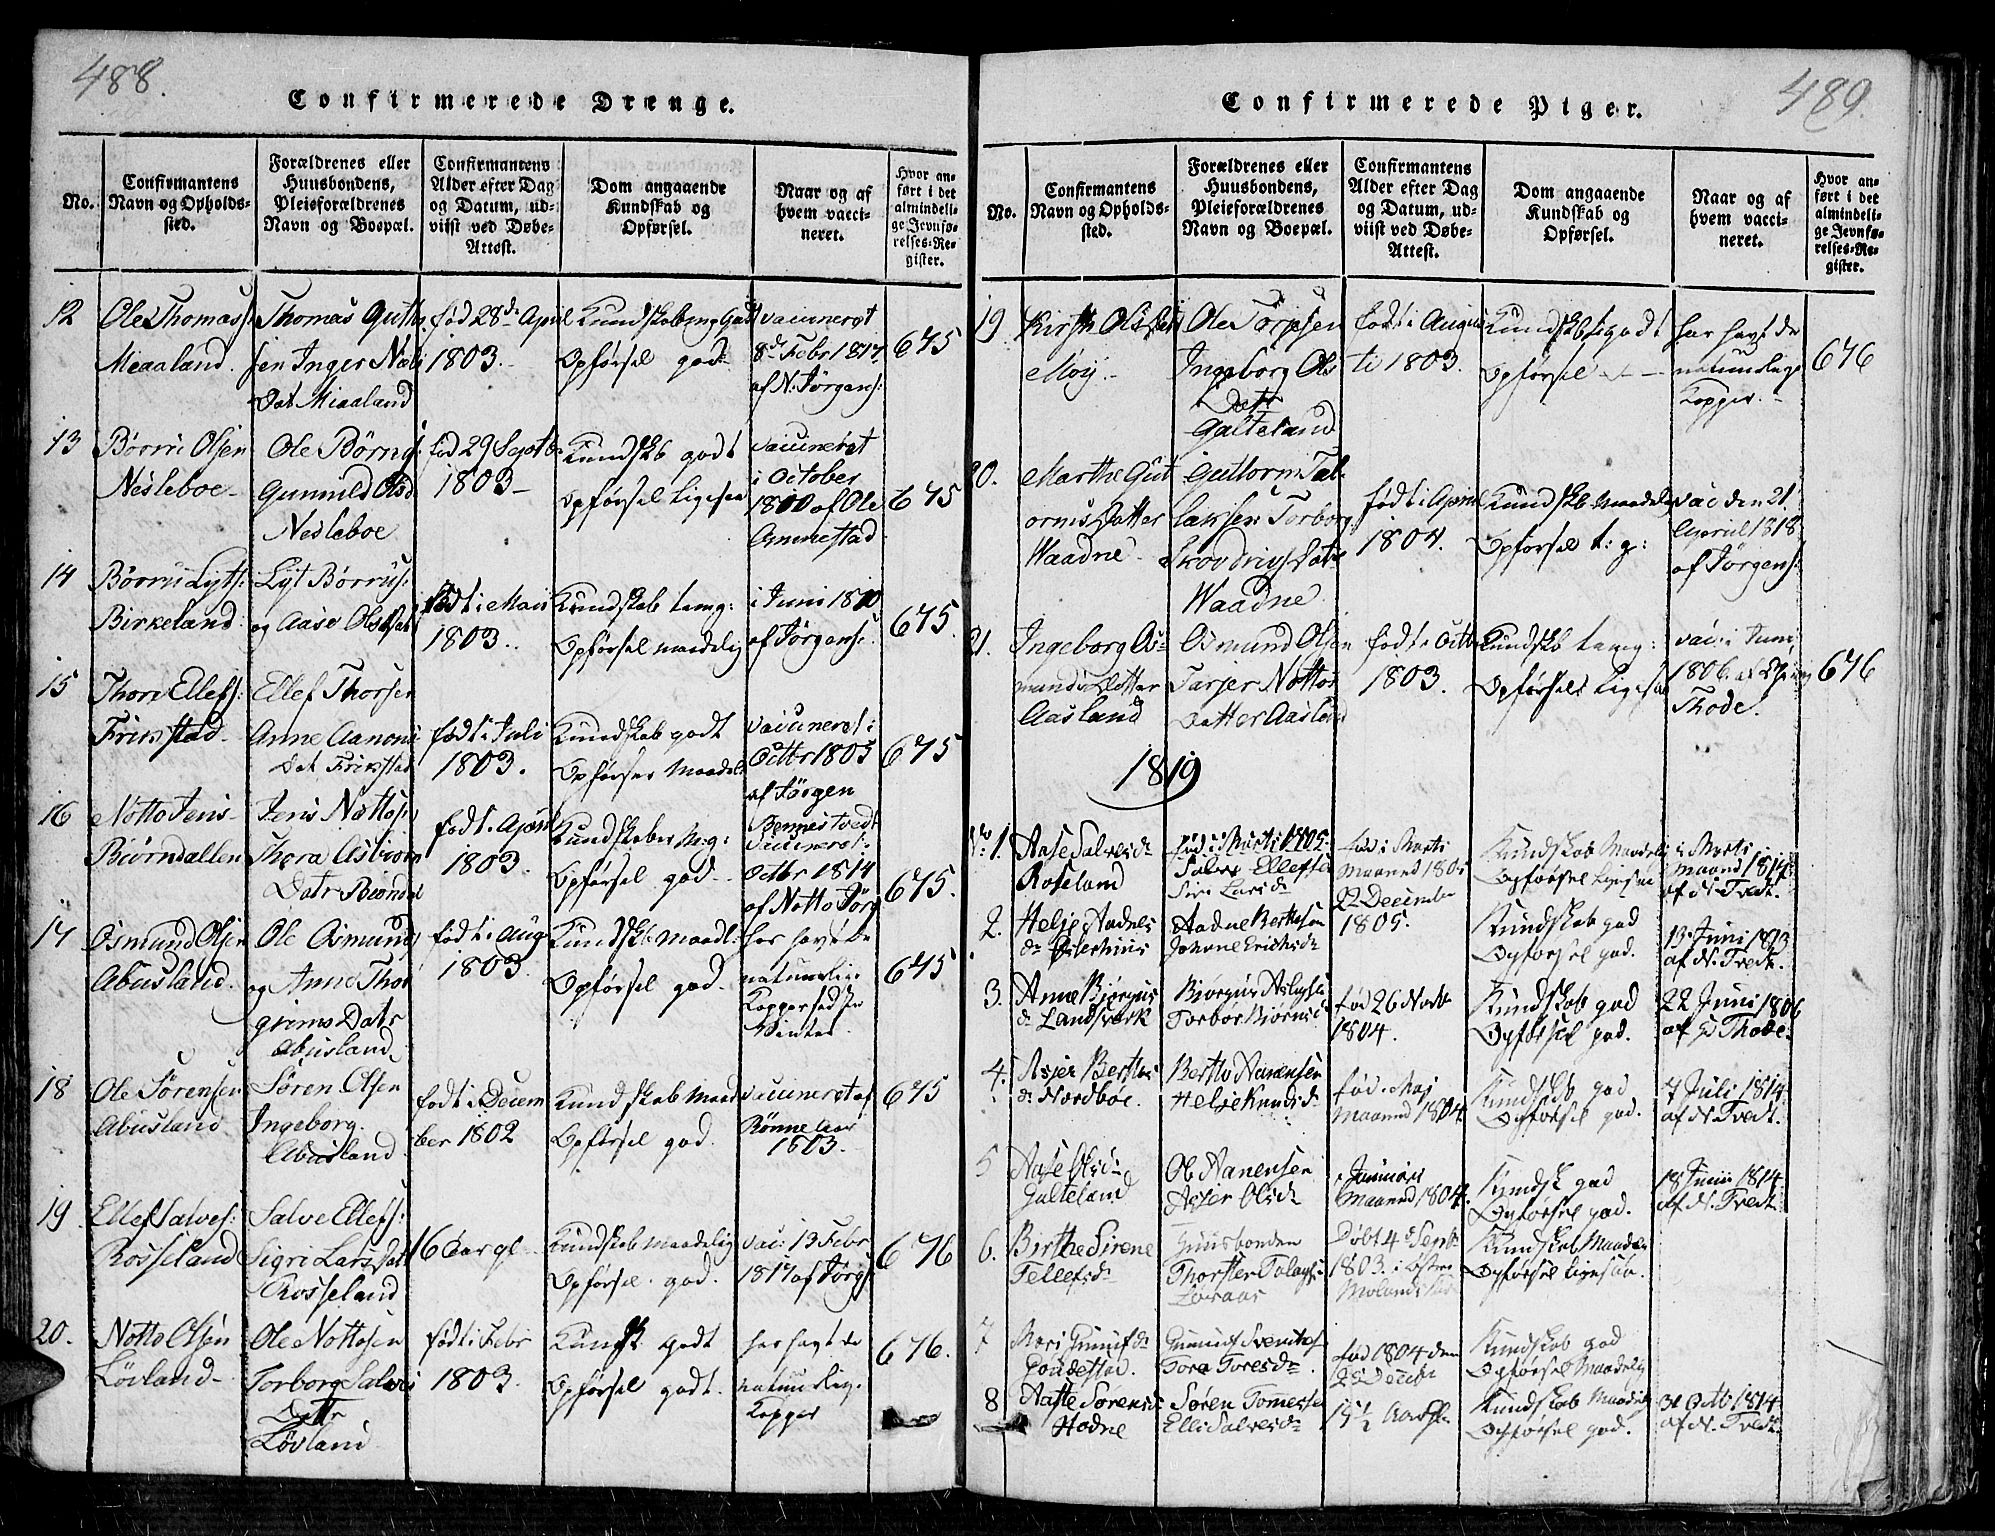 488.
Confirmerede Drenge.
No.
Confirmantens
Navn og Opholds-
sted.
Forældrenes eller
Huusbondens,
Pleieforældrenes
Navn og Boepæl.
Confirmantens
Alder efter Dag
og Datum, ud-
viist ved Døbe-
Attest.
Dom angaaende
Kundskab og
Opførsel.
Naar og af
hvem vacci-
neret.
Hvor an-
ført i det
almindeli-
ge Jevnfø-
relses-Re-
gister.
12
Ole Thomass:
Miaaland.
Thomas Gutto
sen Inger
Dat Miaaland
fød 28de April
1803.
Kundskab mg Godt
Opførsel god
vaccineret
8d Febr 1817.
af N. Jørgens:
675
13
Børru Olsen
Nesleboe
Ole Børrus
Gunnild Olsd
Nesleboe
fød 29 Septbr
1803
Kundskb godt
Opførsel Ligesaa
vaccineret
i October
1800 af Ole
Ommestad
675
14
Børru Lyts:
Birkeland
Lyt Børrus:
og Aase Olsdat
født i Maii
1803.
Kundskab temg:
Opførsel maadelig
i Juni 1810
af Jørgens:
675.
15
Thore Ellefs:
Frikstad
Ellef Thorsen
Anne Aanons
Dat Frikstad
født i Juli
1803.
Kundskab godt
Opførsel Maadel
vaccineret i
Octbr 1805
af Jørgen
Bennestvedt
675
16
Notto Jens-
Biørndallen
Jens Nottos
Thora Asbiørn
Datr Biørndal
født i April
1803.
Kundskaber M:g:
Opførsel god
vaccineret
Octbr 1814
af Notto Jørg
675.
17
Osmund Olsen
Abusland.
Ole Osmunds
og Anne Thor
grims Datr
Abusland
født i Aug
1803.
Kundskb Maadl:
Opførsel god
har havt de
naturlige
Kopper sidste
Vinter.
675
18
Ole Sørensen
Abusland
Søren Olsen
Ingeborg.
Abusland
født i Decem
ber 1802
Kundskab Maad
Opførsel god.
vaccineret af
Rønne Aar
1803.
675
19.
Ellef Salves:
Rosseland
Salve Ellefs:
Sigri Lars Dat
Rosseland
16 Aar gl
Kundskab maadelig
Opførsel god.
vac: 13 Febr
1817 af Jørgs
676
20.
Notto Olsen
Løvland
Ole Nottosen
Torborg Salves
Datr
Løvland
født i Febr
1803.
Kundsk godt
Opførsel godt.
har hagt de
naturlig.
Kopper
676.
489.
Confirmerede Piger.
No.
Confirmantens
Navn og Opholds-
sted.
Forældrenes eller
Huusbondens,
Pleieforældrenes
Navn og Boepæl.
Confirmantens
Alder efter Dag
og Datum, ud-
viist ved Døbe-
Attest.
Dom angaaende
Kundskab og
Opførsel.
Naar og af
hvem vacci-
neret.
Hvor an-
ført i det
almindeli-
ge Jevnfø-
relses-Re-
gister.
19
Kirsti Olsdat
Moy
Ole Torjesen
Ingeborg Ols
Datr
Galteland
født i Augu
sti 1803.
Kundskb godt
Opførsel
har havt de
naturlige
Kopper.
676
20.
Marthe Gut
orms Datter
Waadne
Guttorm Tal
laksen Torborg
Waadne
født i April
1804.
Kundskb Maadel
Opførsel t: g:
vac den 21.
April 1818.
af Jørgens:
21.
Ingeborg Os-
munds Datter
Aasland
Osmund Olsen
Tarjer Nottos
Datter Aasland
født i Octb
1803.
Kundskb temg:
Opførsel Ligesaa
vac: i Juni
1806.
Thode.
676
1819
No 1.
Aase Salvesdr
Roseland
Salve Ellefsen
Siri Larsdr
fød i Marts
Maaned 1805
Kundskab Maadelig
Opførsel ligesaa
i Marts
Maaned 1814
af N. Tvedt.
2.
Helje Aadnes
dr
Aadne Berthosen
Johanne Erichsdr
22 December
1805.
Kundskab god
Opførsel god.
13. Juni
af N. Tvedt.
3.
Anne Bjørgus
dr Landsverk
Bjørgus Aslagsen
Torbor Bjørnsdr
fød 26 Novb
1804.
Kundskab god
Opførsel god.
22 Juni 1806
af Thode.
4.
Asjer Berthos
dr Nordbøe.
Bertho Aanensen
Helje Knudsdr
fød i Maj
Maaned 1804
Kundskb god
Opførsel god.
7 Juli 1814
af N. Tvedt.
5
Aase Olsdr
Galteland
Ole Aanensen
Asjer Olsdr
i Januari
Maaned 1804.
Kundsk god
Opførsel god.
18 Juni 1814
af N. Tvedt.
6.
Birthe Sirene
Tellefsdr
Huusbonden
Thorster
Døbt 4de Septb
1803. i Østre
Molands
Kundskab Maadel
Opførsel ligesaa.
7
Gunufsdr
Tora Toresdr
fød 1804 den
Decbr
Kundskab god
Opførsel Maadelig
8
Aaste Sørensd:
Hodne
Søren Tommesse
Elli Salvesdr
15½ Aar
Kundskab Maadelig
Opførsel god.
31 Octb 1814
af N. Tvedt.